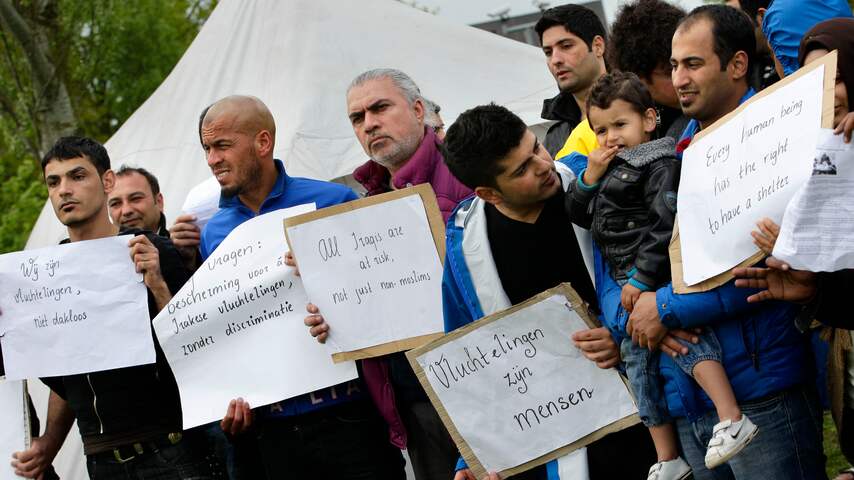 Wij zijn
vluchtelingen,
niet dakloos
vragen:
bescherming voor
Irakese vluchtelingen,
zonder discriminatie
All Iraqis are
at risk,
not just non-moslims
Vluchtelingen
zijn
mensen
Every human being
has the right
to have a shelter